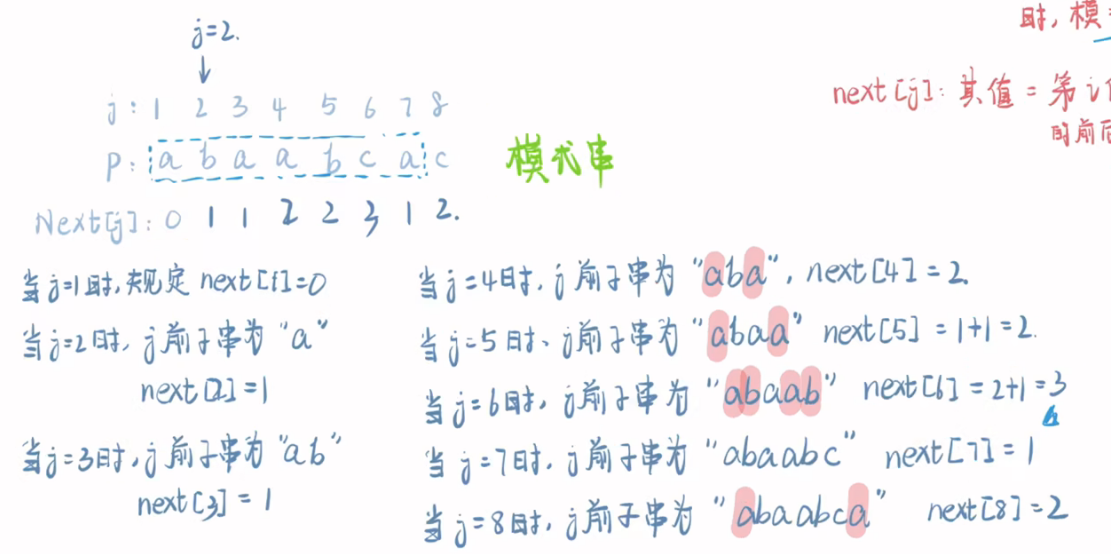 j=2.
时,模
j: 1 2 3 4 5 6 7 8
next[j]: 其值 = 第
P: a b a a b c a c
模式串
的前后
Next[j]: 0 1 1 2 2 3 1 2.
当j=1时,规定 next[1]=0
当j=2时, j前子串为 "a"
next[2]=1
当j=3时, j前子串为 "ab"
next[3] = 1
当j=4时, j前子串为 "aba", next[4] = 2.
当j=5时、j前子串为 "abaa" next[5] = 1+1=2.
当j=6时, j前子串为 "abaab" next[6] = 2+1=3
当j=7时, j前子串为 "abaabc" next[7] = 1
当j=8时, j前子串为 "abaabca" next[8]=2